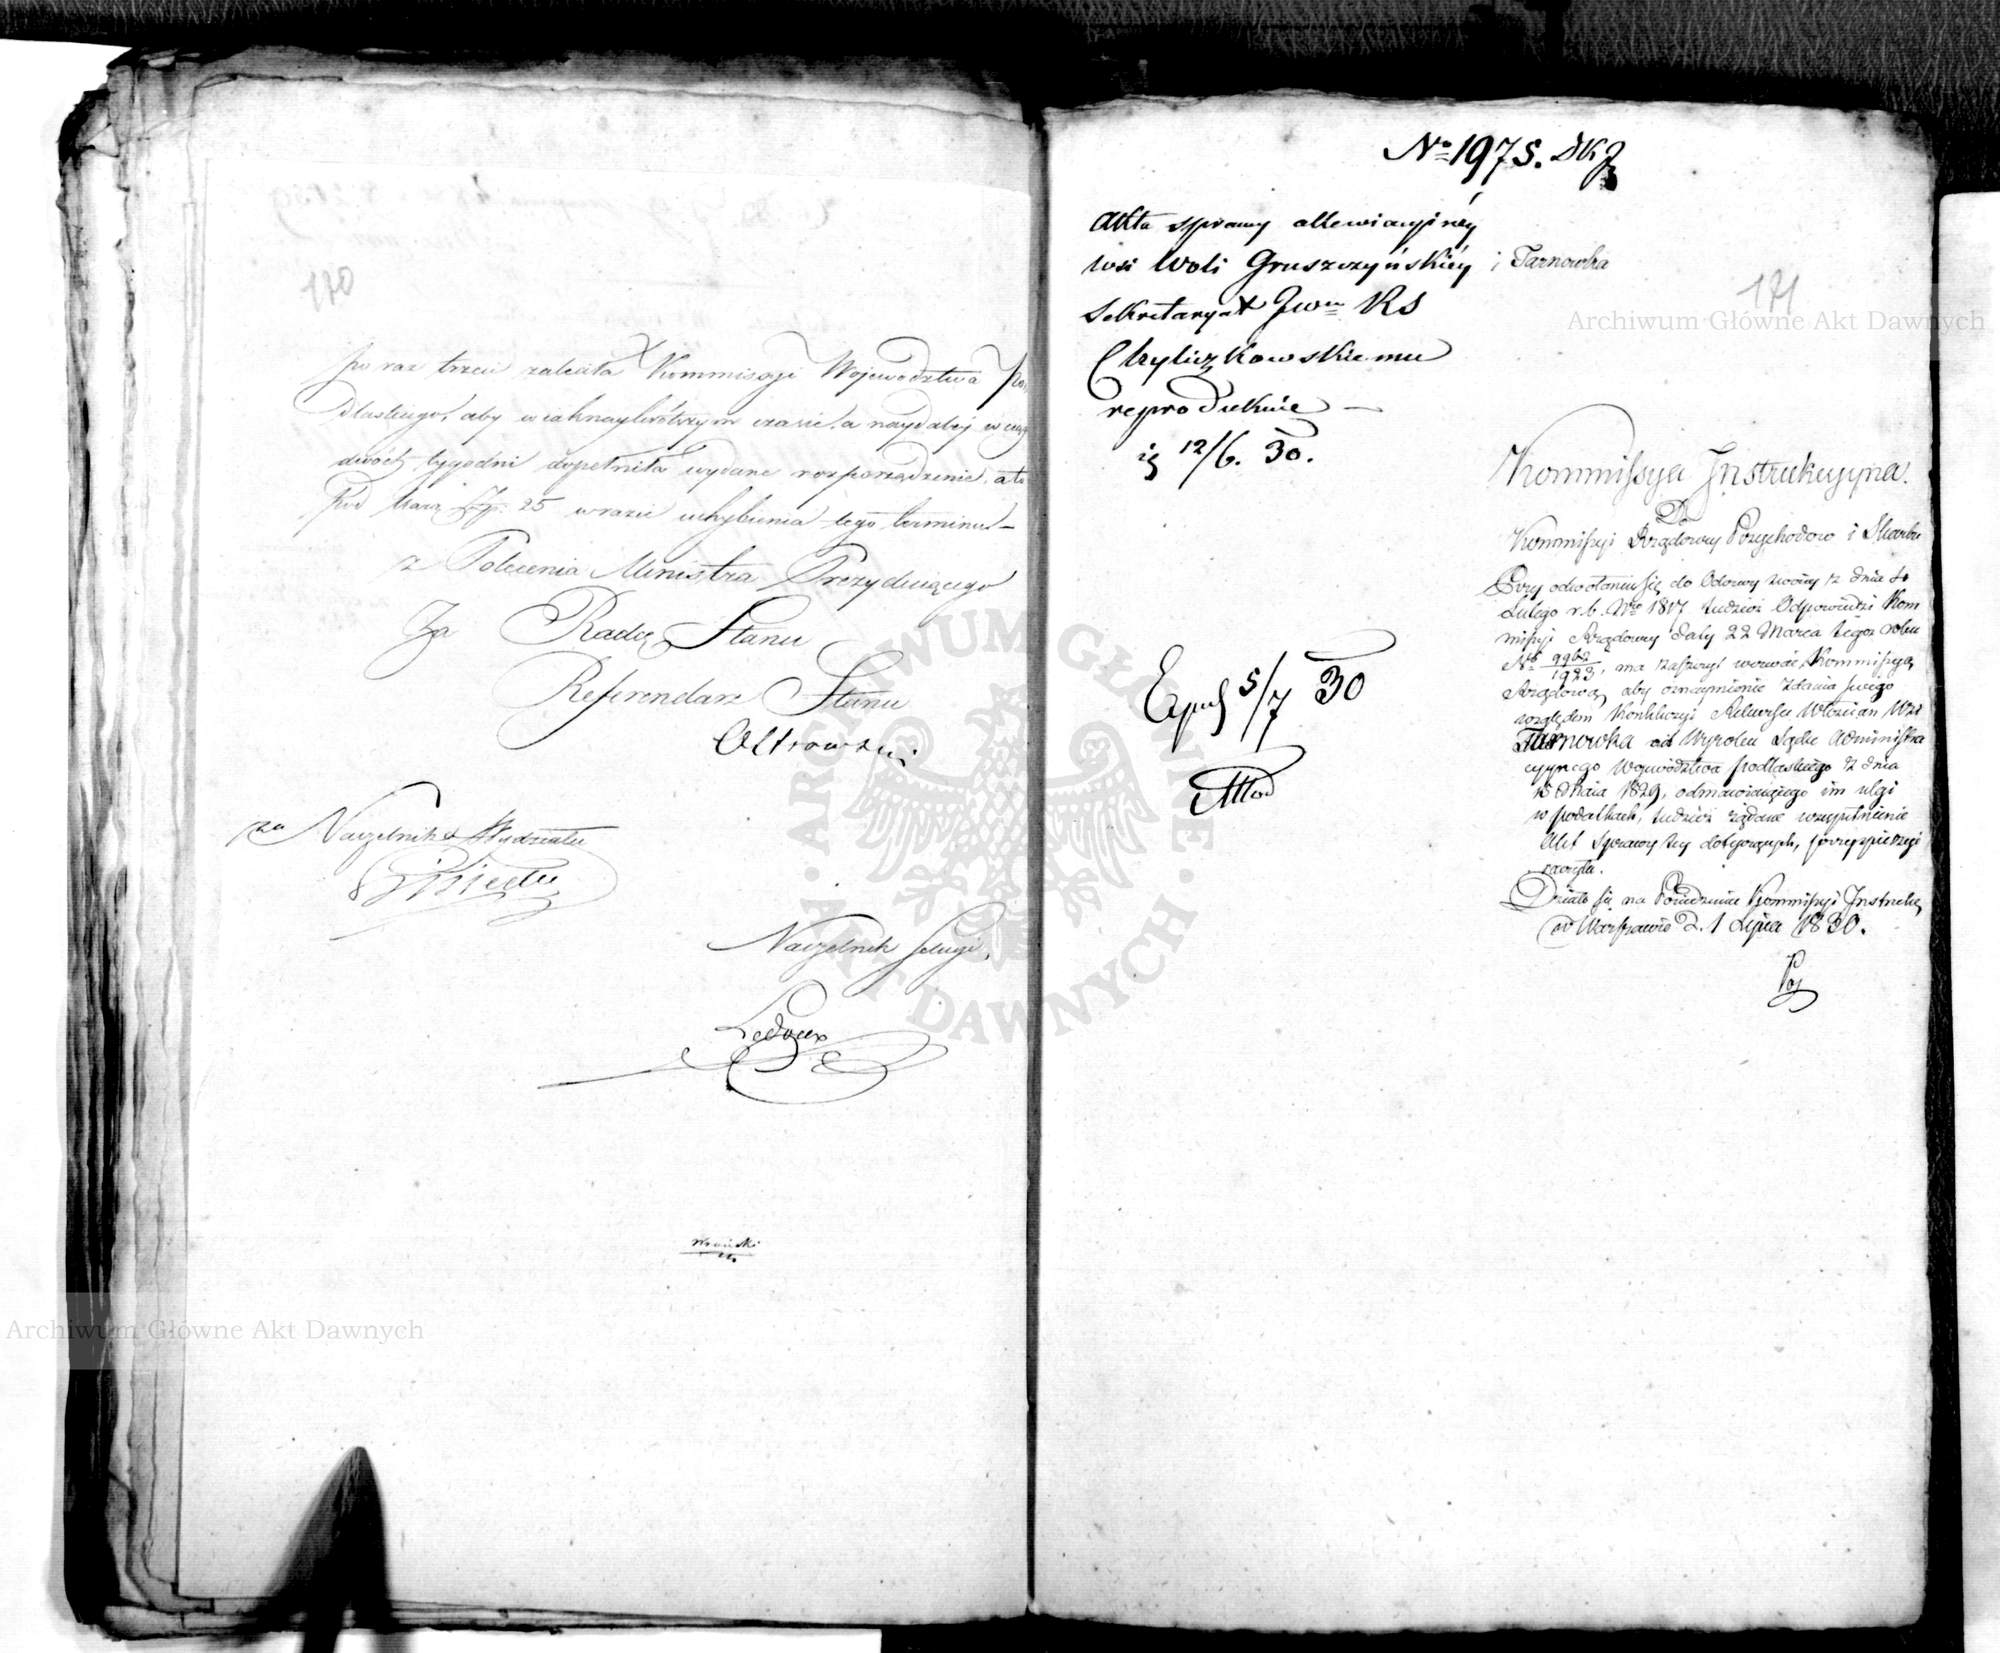 170
po raz trzeci zaleciła Kommissyi Województwa Po,
dlaskiego, aby w iaknaykrótszym czasie, a naydaley w ciągu
dwóch tygodni dopełniła wydane rozporządzenie, a to
Pod karą Zp. 25 w razie uchybienia tego terminu.–
z Polecenia Ministra Prezyduiącego
Za Radcę Stanu
Referendarz Stanu
Ostrowski
za Naczelnik Wydziału
Naczelnik Sekcyi,
Ledoux
Wroński
No 1975.
171
Akta sprawy allewiacyiney
wsi Woli Gruszczyńskiey i Tarnówka
Sekretaryat
Chyliczkowskiemu
reprodukuie –
12/6. 30.
5/7 30
Kommissya Instrukcyyna.
Do
Kommissyi Rządowey Przychodów i Skarbu
Przy odwołaniu się do Odezwy swoiey z dnia
Lutego r. b. Nro 1817 tudzież Odpowiedzi Kom
missyi Rządowey daty 22 Marca tegoż roku
No 9962/1923, ma zaszczyt wezwać Kommissyą
Rządową, aby oznaymienie zdania swego
względem konkluzyi Rekursu Włościan Wsi
Tarnowka od Wyroku Sądu Administra
cyynego Województwa Podlaskiego z dnia
15 Maia 1829, odmawiaiącego im ulgi
w podatkach, tudzież żądane uzupełnienie
Akt Sprawy tey dotyczących, przyspieszyć
raczyła.
Działo się na Posiedzeniu Kommissyi Instrukcy
w Warszawie d. 1 Lipca 1830.
Archiwum Główne Akt Dawnych
Archiwum Główne Akt Dawnych
ARCHIWUM GŁÓWNE AKT DAWNYCH